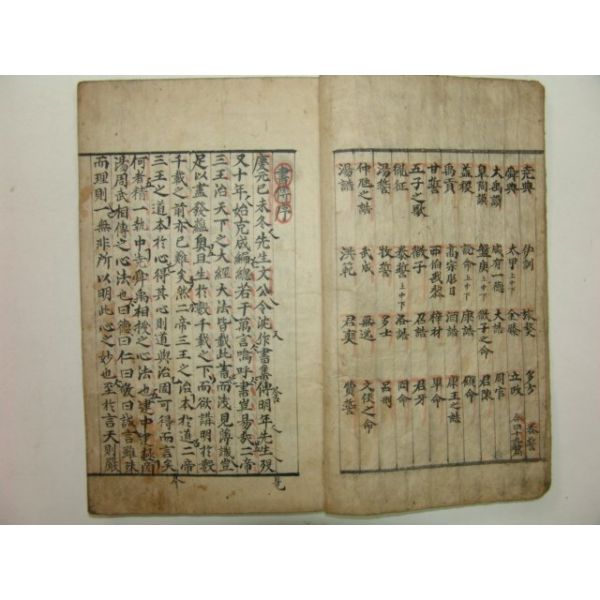 堯典 伊訓 旅獒 多方 秦誓
舜典 太甲上中下 金縢 立政
大禹謨 咸有一德 大誥 周官
皐陶謨 盤庚上中下 微子之命 君陳
益稷 說命上中下 康誥 顧命
禹貢 高宗肜日 酒誥 康王之誥
甘誓 西伯戡黎 梓材 畢命
五子之歌 微子 召誥 君牙
胤征 泰誓上中下 洛誥 冏命
湯誓 牧誓 多士 呂刑
仲虺之誥 武成 無逸 文侯之命
湯誥 洪範 君奭 費誓
書傳序
慶元己未冬先生文公令沈作書集傳明年先生歿
又十年始克成編總若干萬言嗚呼書豈易言哉二帝
三王治天下之大經大法皆載此書而淺見薄識豈
足以盡發蘊奧且生於數千載之下而欲講明於數
千載之前亦已難矣然二帝三王之治本於道二帝
三王之道本於心得其心則道與治固可得而言矣
何者精一執中堯舜禹相授之心法也建中建極商
湯周武相傳之心法也曰德曰仁曰敬曰誠言雖殊
而理則一無非所以明此心之妙也至於言天則嚴